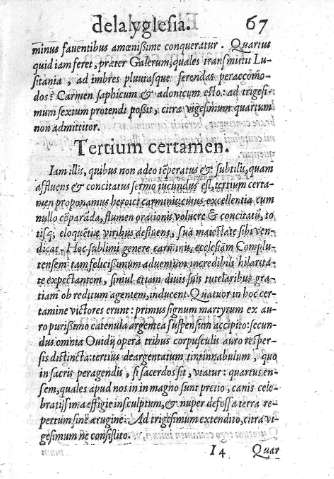 delalyglesia. 67
minus fauentibus amœnissime conqueratur. Quartus
quid iam feret, præter Galerum, quales transmittit Lu-
sitania, ad imbres pluuiasque ferendas peraccōmo-
dos? Carmen saphicum & adonicum esto: ad trigesi-
mum sextum protendi possit, citra vigesimum quartum
non admittitor.
Tertium certamen.
Iam illis, quibus non adeo tēperatus & subtilis, quam
affluens & concitatus sermo iucundus est, tertium certa-
men proponamus heroici carminis: cuius excellentia cum
nullo cōparāda, flumen orationis voluere & concitatū, to-
tisq; eloquētiæ viribus defluens, suā maiestate sibi ven-
dicat. Hoc sublimi genere carminis, ecclesiam Complu-
tensem tam felicissimum aduentum incredibili hilarita-
te expectantem, simul etiam diuis suis tutelaribus gra-
tiam ob reditum agentem, inducent. Quatuor in hoc cer-
tamine victores erunt: primus signum martyrum ex au-
ro purissimo catenula argentea suspensum accipito: secun-
dus omnia Ouidij opera tribus corpusculis auro resper-
sis distincta: tertius de argentatum tintinabulum, quo
in sacris peragendis, si sacerdos sit, vtatur: quartus en-
sem, quales apud nos in in magno sunt precio, canis cele-
bratissima effigie insculptum, & nuper defossa terra re-
pertum sinè ærugine. Ad trigesimum extenditor, citra vi-
gesimum nē consistito.
I 4 Quar